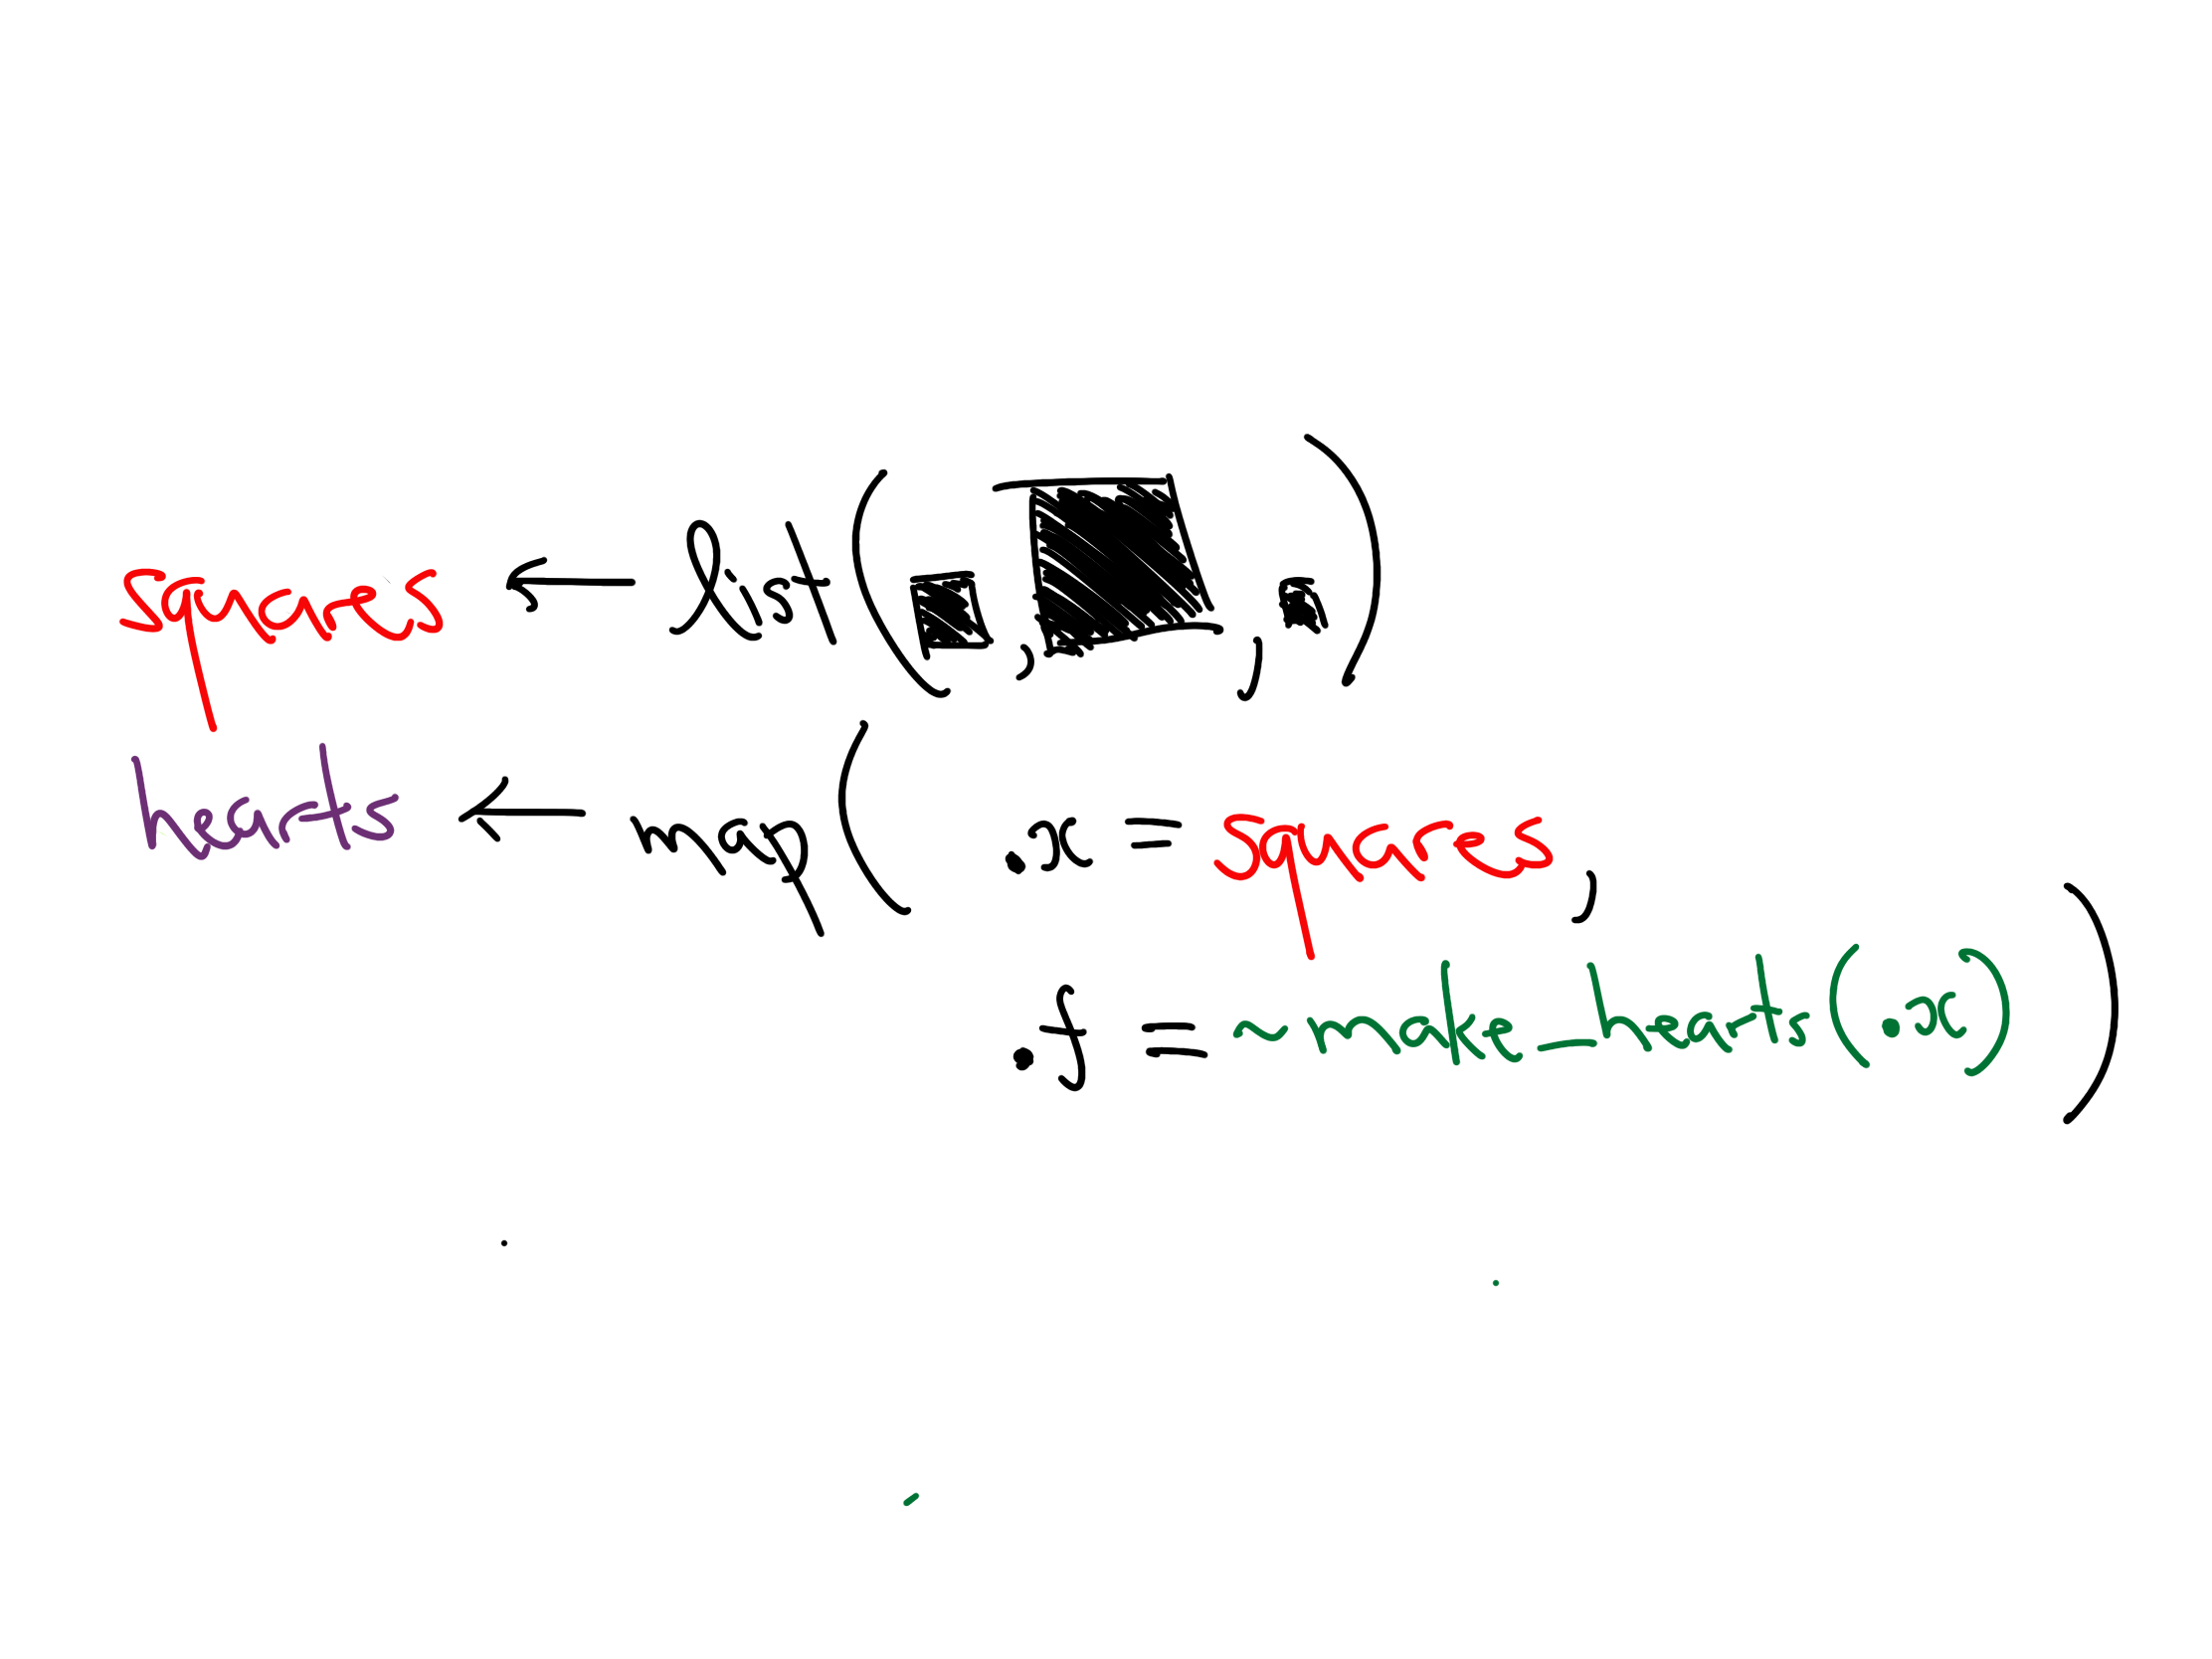 squares ← list(■, ■, ■)
hearts ← map( .x = squares,
.f = ~ make_hearts(.x) )